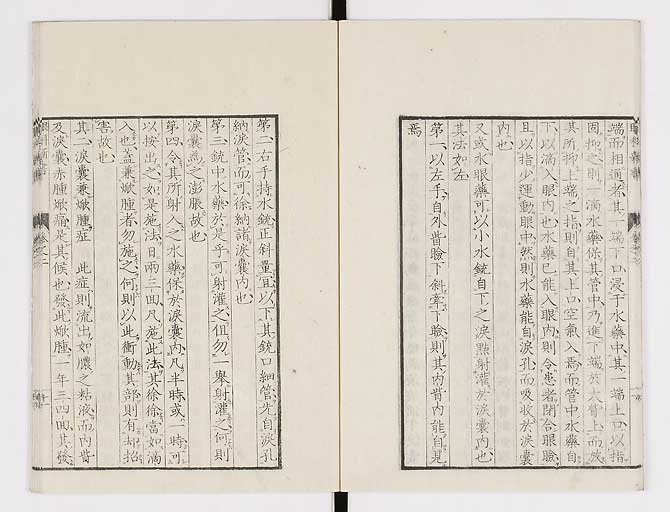 端而相通者其一端下口浸于水藥中其一端上口以指
固抑之則一滴水藥保其管中乃進下端於大眥上而放
其所抑上端之指則自其上口空氣入焉而管中水藥自
下以滴入眼內也水藥已能入眼內則令患者閉合眼瞼
且以指少運動眼中然則水藥能自淚孔而吸收於淚囊
內也
又或水眼藥可以小水銃自下之淚點射灌於淚囊內也
其法如左
第一以左手自外眥瞼下斜牽下瞼則其內眥內能自見
焉
第二右手持水銃正斜量宜以下其銃口細管先自淚孔
納淚管而可徐納諸淚囊內也
第三銃中水藥於是乎可射灌之但勿一舉射灌之何則
淚囊為之膨脹故也
第四令其所射入之水藥保於淚囊內凡半時或一時可
以按出之如是施法日兩三回凡施此法其徐徐當如滴
入也蓋兼焮腫者勿施之何則以此衝動其部則有却招
害故也
其二淚囊兼焮腫症 此症則流出如膿之粘液而內眥
及淚囊赤腫焮痛是其候也發此焮腫一年三四回其發